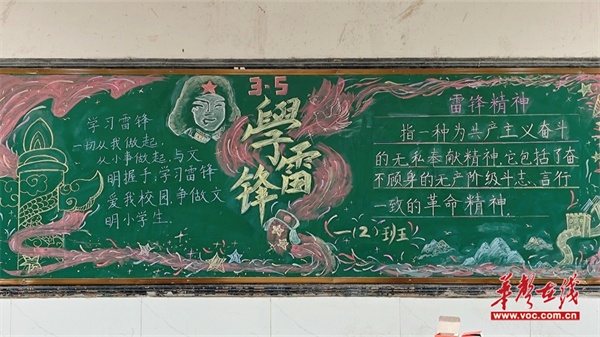 学习雷锋
一切从我做起,
从小事做起,与文
明握手,学习雷锋
爱我校园,争做文
明小学生.
3·5
學雷锋
雷锋精神
指一种为共产主义奋斗
的无私奉献精神,它包括了奋
不顾身的无产阶级斗志,言行
一致的革命精神.
一(2)班
华声在线
www.voc.com.cn